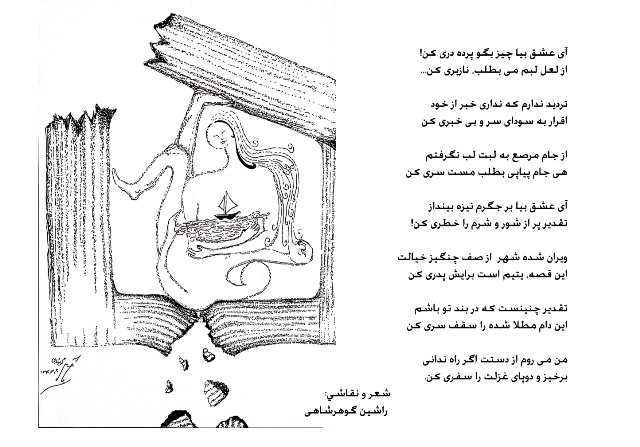 آی عشق بیا چیز بگو پرده دری کن!
از لعل لبم می بطلب، نازبری کن...
تردید ندارم که نداری خبر از خود
اقرار به سودای سر و بی خبری کن
از جام مرصع به لبت لب نگرفتم
هی جام پیاپی بطلب مست سری کن
آی عشق بیا بر جگرم نیزه بینداز
تقدیر پر از شور و شرم را خطری کن!
ویران شده شهر از صف چنگیز خیالت
این قصه، یتیم است برایش پدری کن
تقدیر چنینست که در بند تو باشم
این دام مطلا شده را سقف سری کن
من می روم از دستت اگر راه ندانی
برخیز و دوپای غزلت را سفری کن.
شعر و نقاشي:
راشین گوهرشاهی